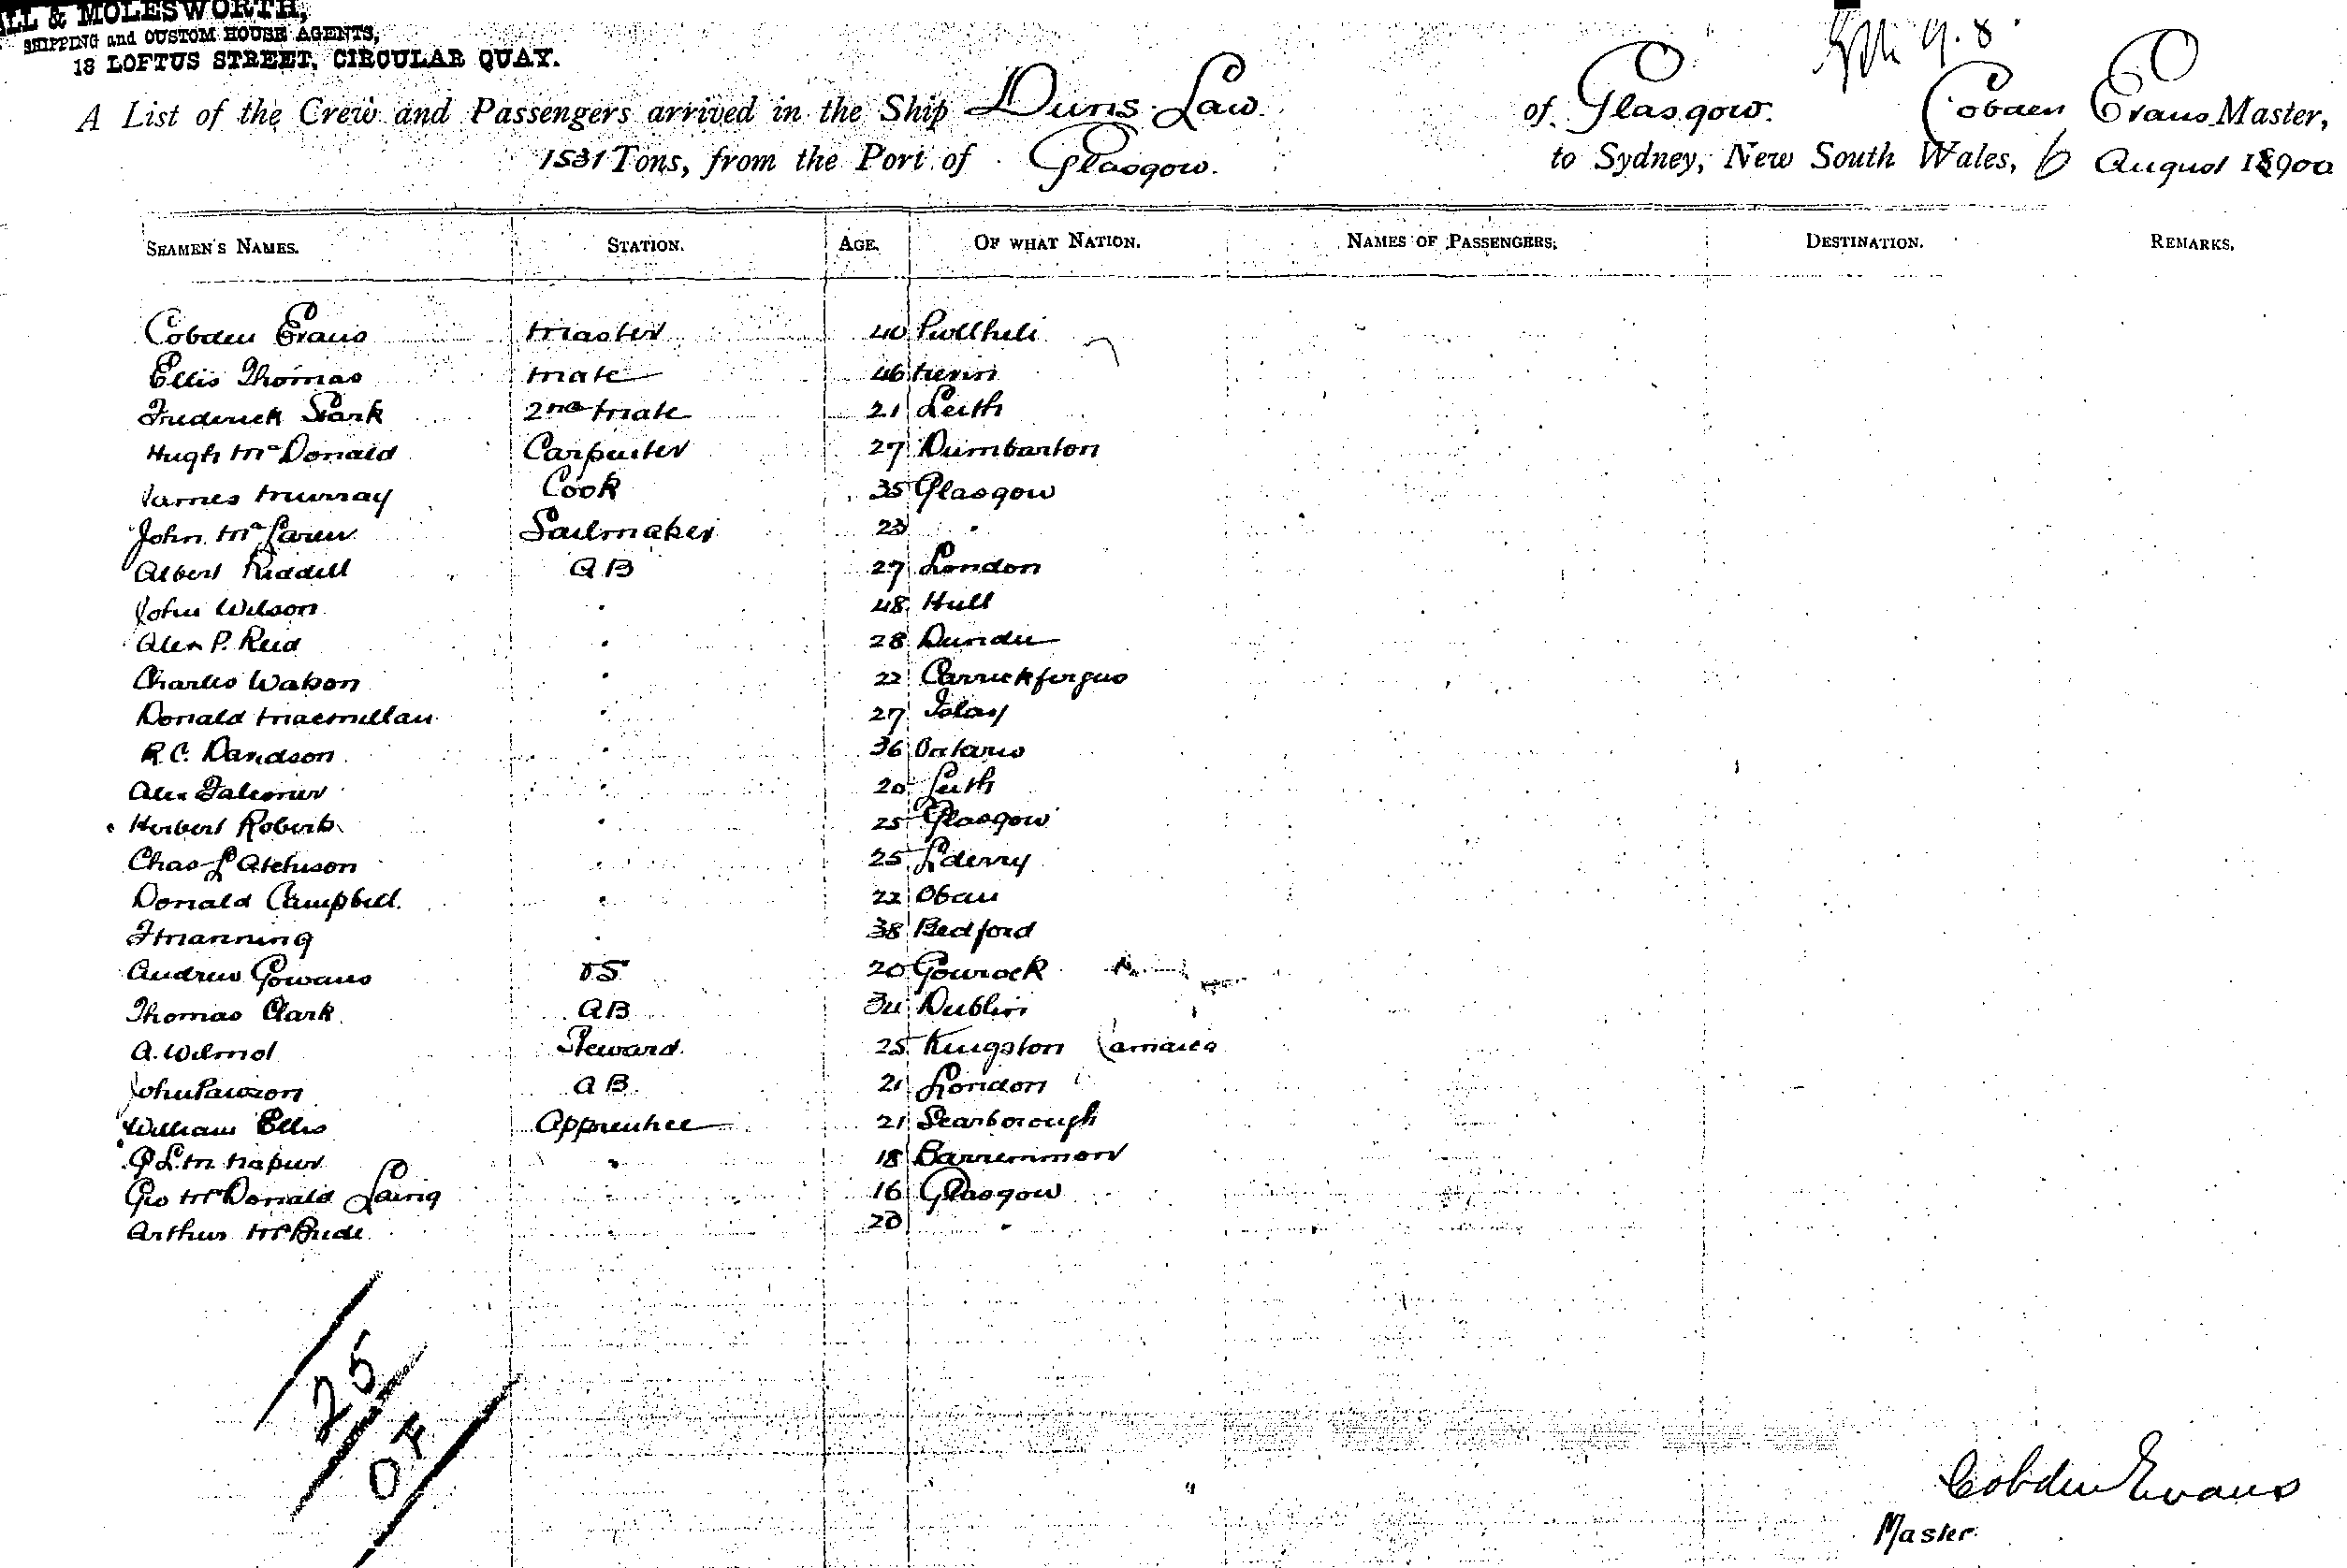 ALL & MOLESWORTH,
SHIPPING and CUSTOM HOUSE AGENTS,
18 LOFTUS STREET, CIRCULAR QUAY.
9.8
A List of the Crew and Passengers arrived in the Ship Duns Law of Glasgow. Cobden Evans Master,
1531 Tons, from the Port of Glasgow. to Sydney, New South Wales, 6 August 1900
SEAMEN'S NAMES. STATION. AGE. OF WHAT NATION. NAMES OF PASSENGERS. DESTINATION. REMARKS.
Cobden Evans Master 40 Pwllheli
Ellis Thomas Mate 46 Nevin
Frederick Stark 2nd Mate 21 Leith
Hugh McDonald Carpenter 27 Dumbarton
James Murray Cook 35 Glasgow
John McLaren Sailmaker 23 "
Albert Riddell AB 27 London
John Wilson " 48 Hull
Alex P. Reid " 28 Dundee
Charles Watson " 22 Carrickfergus
Donald Macmillan " 27 Islay
R.C. Davidson " 36 Ontario
Alex Falconer " 20 Leith
Herbert Roberts " 25 Glasgow
Chas L Atchison " 25 Lderry
Donald Campbell " 22 Oban
F Manning " 38 Bedford
Andrew Gowans OS 20 Gourock
Thomas Clark AB 34 Dublin
A. Wilmot Steward 25 Kingston Jamaica
John Pawson AB 21 London
William Ellis Apprentice 21 Scarborough
L.M. Napier " 18
Geo McDonald Laing " 16 Glasgow
Arthur McBride 20 "
25
Cobden Evans
Master